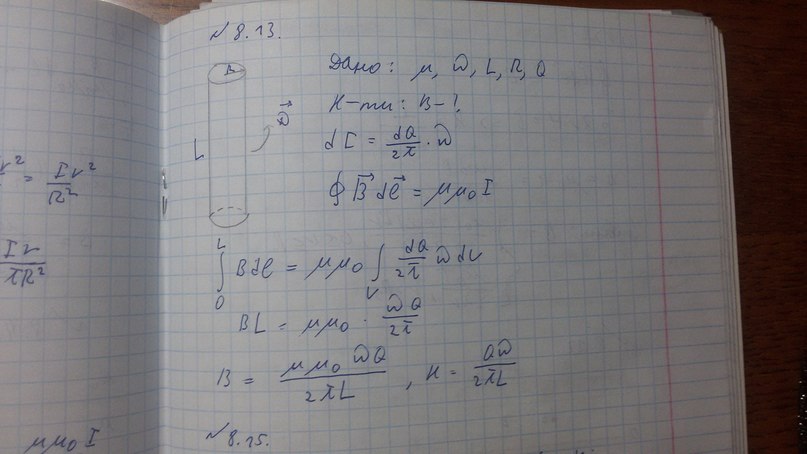 r² = Ir²/R²
Ir/πR²
μμ₀ I
№ 8.13.
R
L
ω⃗
Дано: μ, ω, L, R, Q
Н-ти: B-?
dI = dQ/2π · ω
∮ B⃗ dℓ⃗ = μμ₀ I
∫₀ᴸ B dℓ = μμ₀ ∫ᵥ dQ/2π ω dV
BL = μμ₀ · ωQ/2π
B = μμ₀ ωQ/2πL , H = Qω/2πL
№ 8.25.